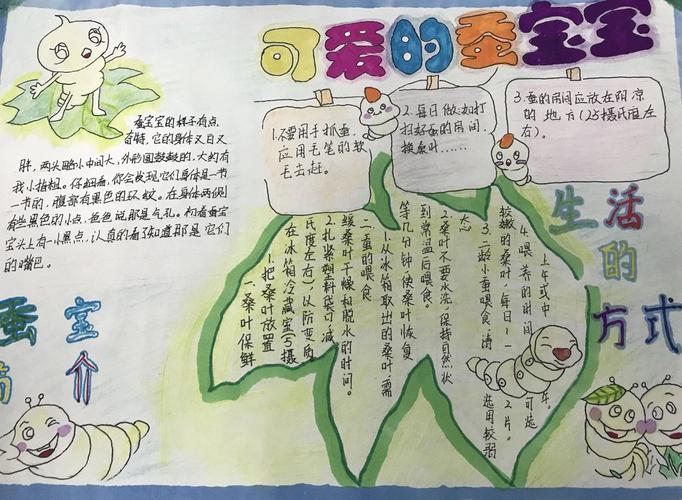 可爱的蚕宝宝
蚕宝宝的样子有点
奇特，它的身体又白又
胖，两头略小中间大，外形圆鼓鼓的，大约有
我小指粗。仔细看，你会发现它们身体是一节
一节的，腹部有黑色的环纹。在身体两侧
有些黑色的小点，爸爸说那是气孔。初看蚕宝
宝头上有一小黑点，认真的看了知道那是它们
的嘴巴。
蚕宝
简介
1.不要用手抓蚕，
应用毛笔的软
毛去赶。
2.每日做：如打
扫好蚕的房间，
换桑叶……
3.蚕的房间应放在阴凉
的地方(25摄氏度左
右)。
生活
的
方式
一、桑叶保鲜
1.把桑叶放置
在冰箱冷藏室(5摄
氏度左右)，以防变质
2.扎紧塑料袋可减
缓桑叶干燥和脱水的时间。
二、蚕的喂食
1.从冰箱取出的桑叶，需
等几分钟，使桑叶恢复
到常温后喂食。
2.桑叶不要水洗，保持自然状
态
3.二龄小蚕喂食，请
选用较弱
较嫩的桑叶，每日1-
2片。
4.喂养的时间可选
上午或中午。